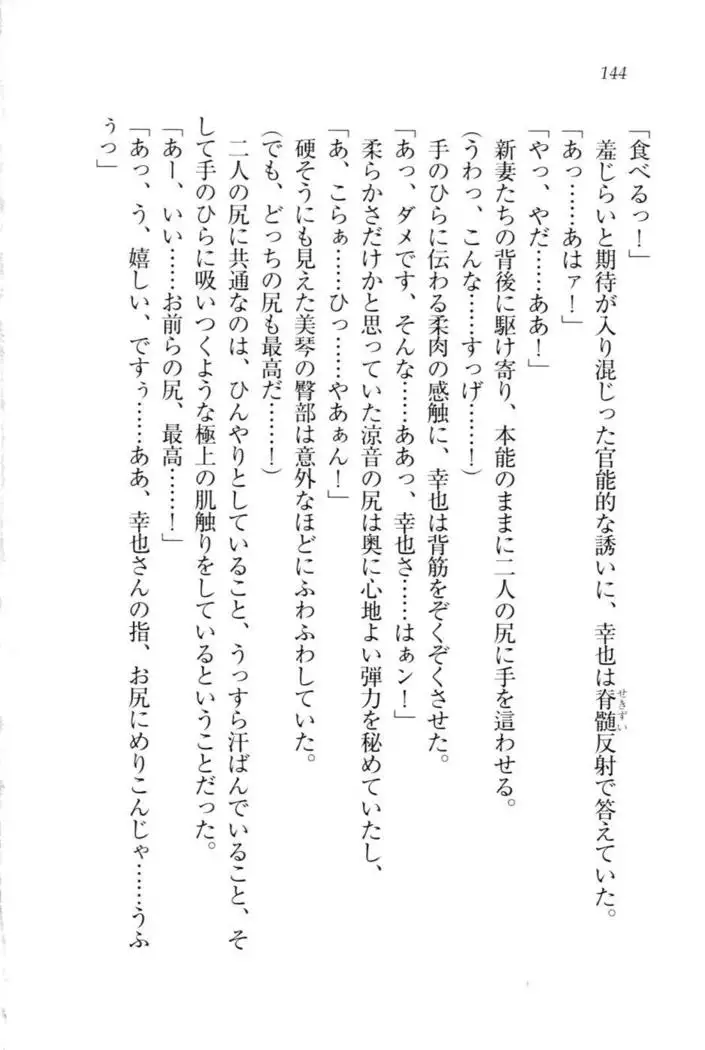 144
「食べるっ！」
羞じらいと期待が入り混じった官能的な誘いに、幸也は脊髄反射で答えていた。
せきずい
「あっ……あはァ！」
「やっ、やだ……ああ！」
新妻たちの背後に駆け寄り、本能のままに二人の尻に手を這わせる。
（うわっ、こんな……すっげ……！）
手のひらに伝わる柔肉の感触に、幸也は背筋をぞくぞくさせた。
「あっ、ダメです、そんな……ああっ、幸也さ……はぁン！」
柔らかさだけかと思っていた涼音の尻は奥に心地よい弾力を秘めていたし、
「あ、こらぁ……ひっ……やあぁん！」
硬そうにも見えた美琴の臀部は意外なほどにふわふわしていた。
（でも、どっちの尻も最高だ……！）
二人の尻に共通なのは、ひんやりとしていること、うっすら汗ばんでいること、そ
して手のひらに吸いつくような極上の肌触りをしているということだった。
「あー、いい……お前らの尻、最高……！」
「あっ、う、嬉しい、ですぅ……ああ、幸也さんの指、お尻にめりこんじゃ……うふ
ぅっ」